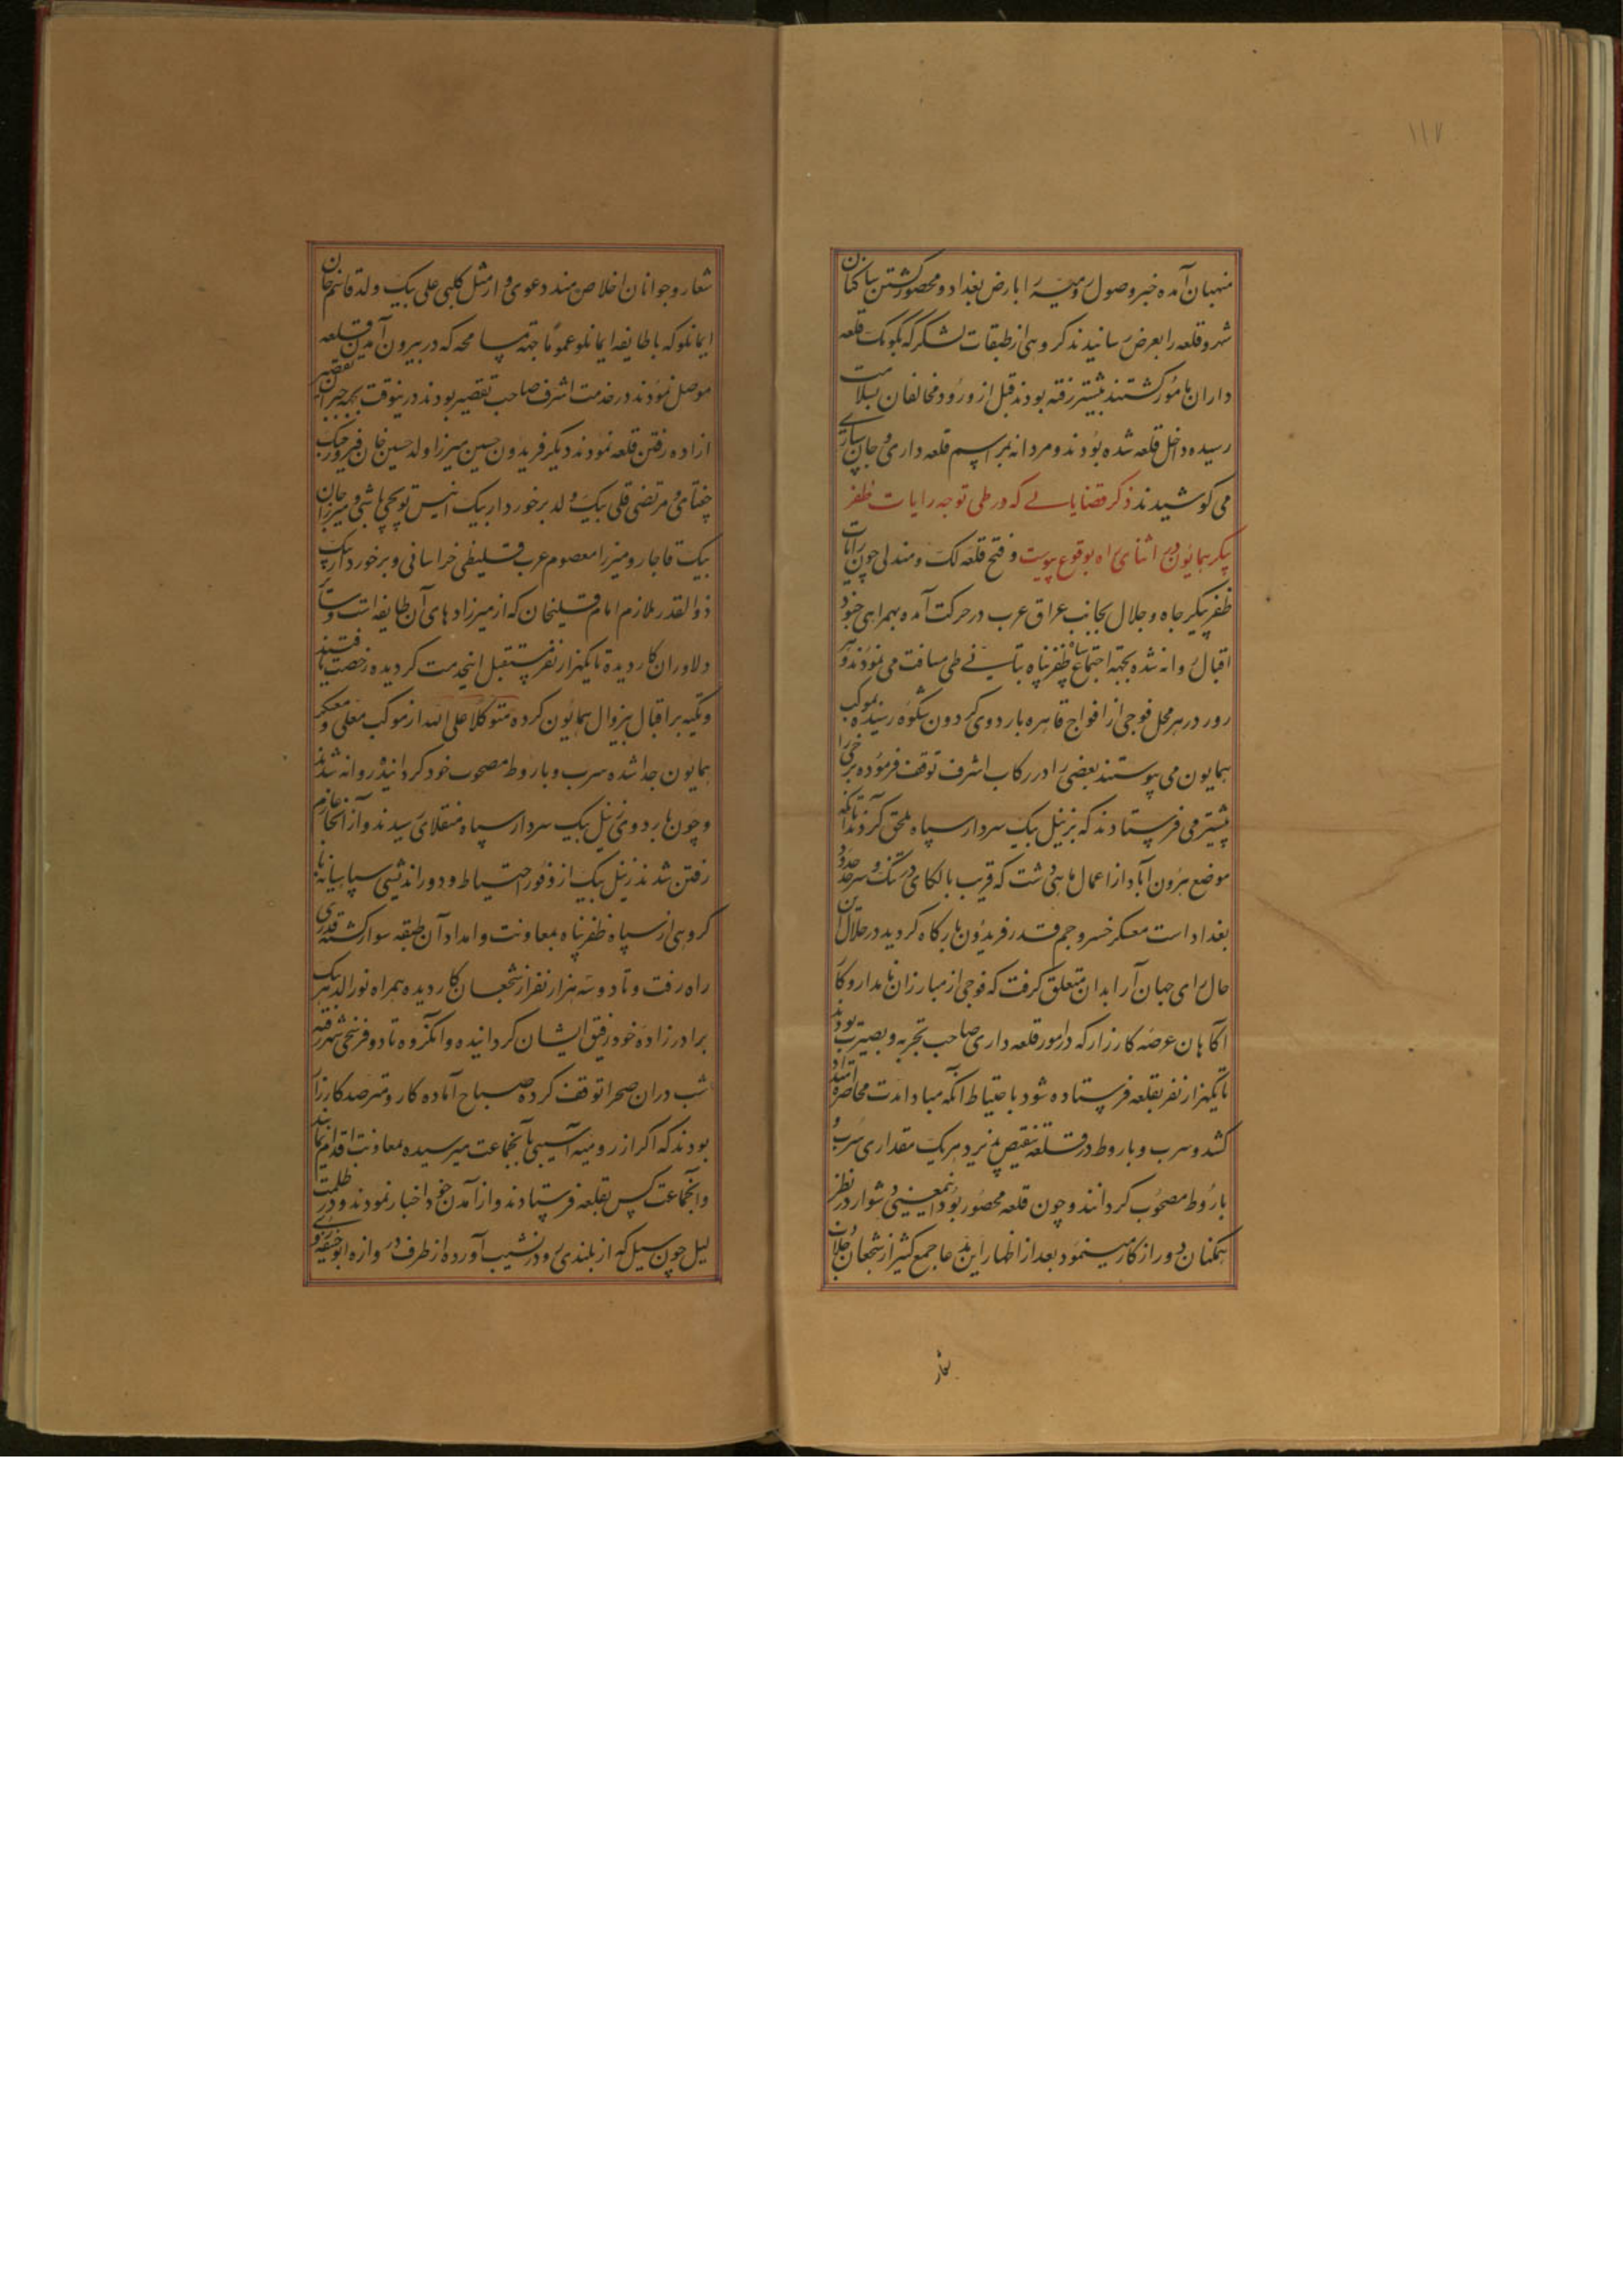 ۱۱۷
منهیان آمده خبر وصول رومیه را بارض بغداد و محصور گشتن ساکنان
شهر و قلعه را بعرض رسانیدند گروهی از طبقات لشکر که بکومک قلعه
داران مأمور گشتند پیشتر رفته بودند قبل از ورود مخالفان بسلامت
رسیده داخل قلعه شده بودند و مردانه بمراسم قلعه داری و جان سپاری
می کوشیدند ذکر قضایائی که در طی توجه رایات ظفر
پیکر همایون در اثنای راه بوقوع پیوست و فتح قلعه لک و مندلی چون رایات
ظفر پیکر جاه و جلال بجانب عراق عرب در حرکت آمده بهمراهی جنود
اقبال روانه شده بجهة اجتماع سپاه ظفر پناه بتأنی طی مسافت می نمودند و هر
روز در هر محل فوجی از افواج قاهره باردوی گردون شکوه رسیده بموکب
همایون می پیوستند بعضی را در رکاب اشرف توقف فرموده برخی را
پیشتر می فرستادند که بزینل بیک سردار سپاه ملحق گردند تا آنکه
موضع هرون آباد از اعمال ماهی دشت که قریب بالکای درتنک و سرحد
بغداد است معسکر خسرو جم قدر فریدون بارگاه گردید در خلال این
حال رای جهان آرا بدان متعلق گرفت که فوجی از مبارزان نامدار و کار
آگاهان عرصه کارزار که در امور قلعه داری صاحب تجربه و بصیرت بودند
تا یکهزار نفر بقلعه فرستاده شود باحتیاط آنکه مبادا مدت محاصره امتداد
کشد و سرب و باروط در قلعه نقیص پذیرد هر یک مقداری سرب و
باروط مصحوب گردانند و چون قلعه محصور بود اینمعنی دشوار در نظر
همکنان دور از کار مینمود بعد از اظهار این مدعا جمع کثیر از شجعان جلادت
شعار
شعار و جوانان اخلاص مند دعوی دار مثل کلبی علی بیک ولد قاسم خان
ایمانلو که با طایفه ایمانلو عموما جهة مسامحه که در بیرون آمدن قلعه
موصل نمودند در خدمت اشرف صاحب تقصیر بودند درینوقت بجهة جبران تقصیر
اراده رفتن قلعه نمودند دیگر فریدون حسین میرزا ولد حسین خان فیروز جنک
چغتای و مرتضی قلی بیک ولد برخوردار بیک انیس توپچی باشی و میرزا جان
بیک قاجار و میرزا معصوم عرب خراسانی و برخوردار بیک
ذوالقدر ملازم امام قلیخان که از میرزادهای آن طایفه است و سایر
دلاوران کاردیده تا یکهزار نفر متقبل اینخدمت گردیده رخصت یافتند
و تکیه بر اقبال بیزوال همایون کرده متوکلا علی الله از موکب معلی و معسکر
همایون جدا شده سرب و باروط مصحوب خود گردانیده روانه شدند
و چون باردوی زینل بیک سردار سپاه منقلای رسیدند و از آنجا عازم
رفتن شدند زینل بیک از وفور احتیاط و دوراندیشی سپاهیانه با
گروهی از سپاه ظفر پناه بمعاونت و امداد آن طبقه سوار گشته قدری
راه رفت و تا دو سه هزار نفر از شجعان کاردیده همراه نورالدهر بیک
برادرزاده خود رفیق ایشان گردانیده و آنگروه تا دو فرسخی شهر رفته
شب در آن صحرا توقف کرده صباح آماده کار و مترصد کارزار
بودند که اگر از رومیه آسیبی بآنجماعت میرسیده بمعاونت اقدام نمایند
و آنجماعت کس بقلعه فرستادند و از آمدن خود اخبار نمودند و در ظلمت
لیل چون سیل که از بلندی رو در نشیب آورد از طرف دروازه ابوحنیفه